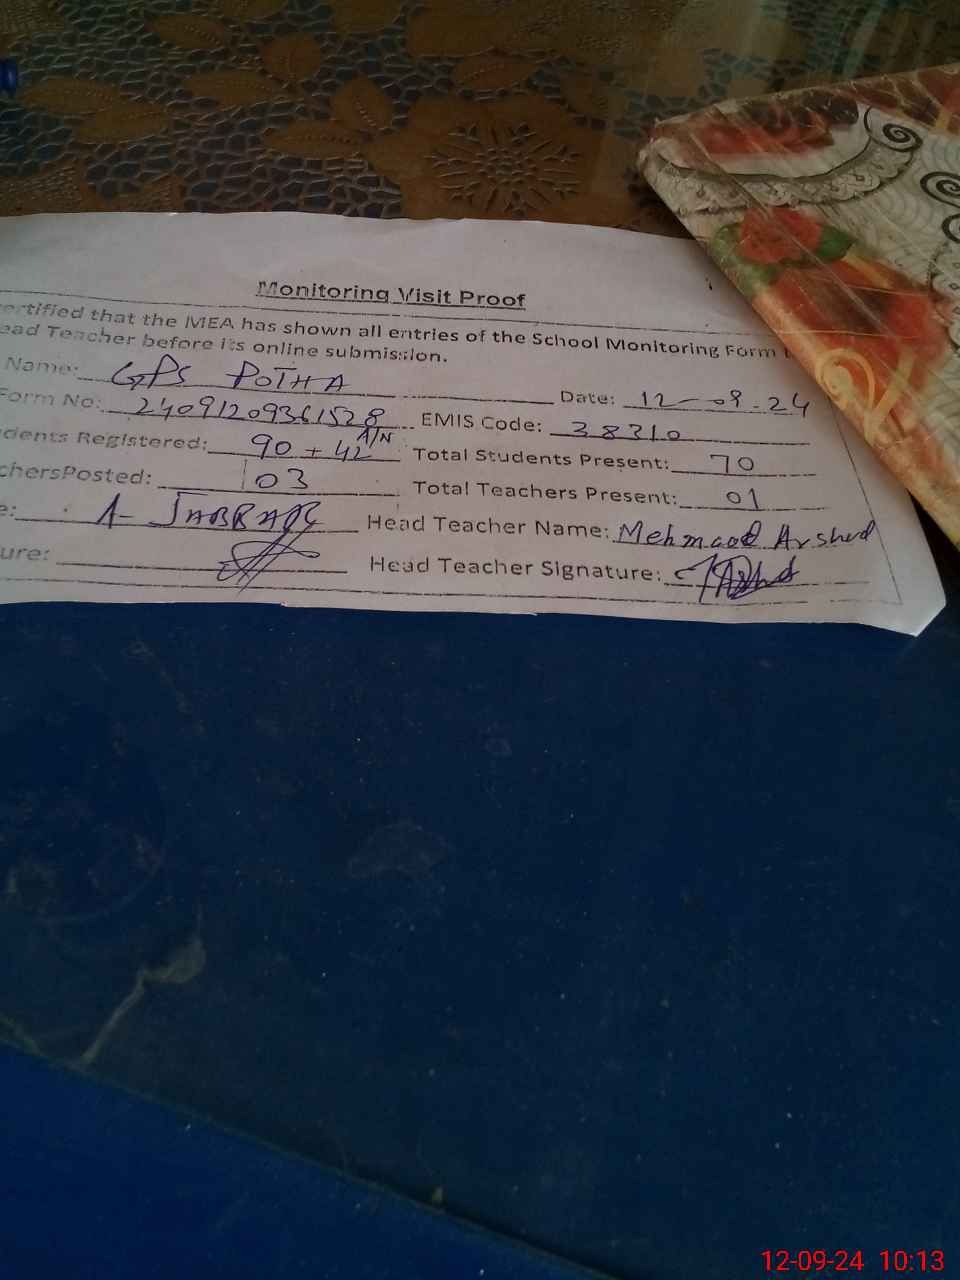 Monitoring Visit Proof
ertified that the MEA has shown all entries of the School Monitoring Form t
ead Teacher before its online submission.
Name: GPS POTHA Date: 12-09-24
Form No: 24091209361528 EMIS Code: 38310
dents Registered: 90 + 42 A/N Total Students Present: 70
chersPosted: 03 Total Teachers Present: 01
e: A- Head Teacher Name: Mehmood Arshad
ure: Head Teacher Signature:
12-09-24 10:13